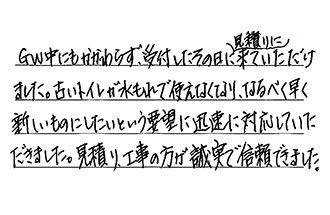 GW中にもかかわらず、受付したその日に見積りに来ていただけ
ました。古いトイレが水もれで使えなくなり、なるべく早く
新しいものにしたいという要望に迅速に対応していた
だきました。見積り、工事の方が誠実で信頼できました。